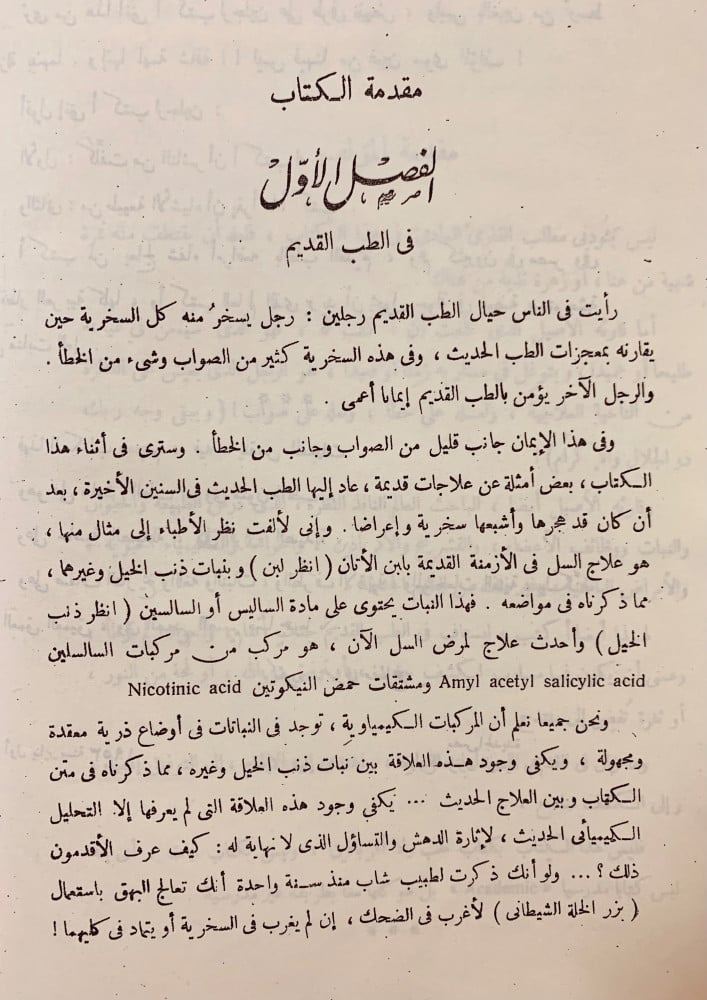 مقدمة الكتاب
الفصل الأوّل
فى الطب القديم
رأيت فى الناس حيال الطب القديم رجلين : رجل يسخرُ منه كل السخرية حين
يقارنه بمعجزات الطب الحديث ، وفى هذه السخرية كثير من الصواب وشىء من الخطأ .
والرجل الآخر يؤمن بالطب القديم إيمانا أعمى .
وفى هذا الإيمان جانب قليل من الصواب وجانب من الخطأ . وسترى فى أثناء هذا
الكتاب ، بعض أمثلة عن علاجات قديمة ، عاد إليها الطب الحديث فى السنين الأخيرة ، بعد
أن كان قد هجرها وأشبعها سخرية وإعراضا . وإنى لألفت نظر الأطباء إلى مثال منها ،
هو علاج السل فى الأزمنة القديمة بابن الأتان ( انظر لبن ) وبنبات ذنب الخيل وغيرهما ،
مما ذكرناه فى مواضعه . فهذا النبات يحتوى على مادة الساليس أو السالسين ( انظر ذنب
الخيل ) وأحدث علاج لمرض السل الآن ، هو مركب من مركبات السالسلين
Amyl acetyl salicylic acid ومشتقات حمض النيكوتين Nicotinic acid
ونحن جميعا نعلم أن المركبات الكيمياوية ، توجد فى النباتات فى أوضاع ذرية معقدة
ومجهولة ، ويكفى وجود هذه العلاقة بين نبات ذنب الخيل وغيره ، مما ذكرناه فى متن
الكتاب وبين العلاج الحديث ... يكفي وجود هذه العلاقة التى لم يعرفها إلا التحليل
الكيميائى الحديث ، لإثارة الدهش والتساؤل الذى لا نهاية له : كيف عرف الأقدمون
ذلك ؟ ... ولو أنك ذكرت لطبيب شاب منذ سنة واحدة أنك تعالج البهق باستعمال
( بزر الخلة الشيطانى ) لأغرب فى الضحك ، إن لم يغرب فى السخرية أو يتماد فى كليهما !